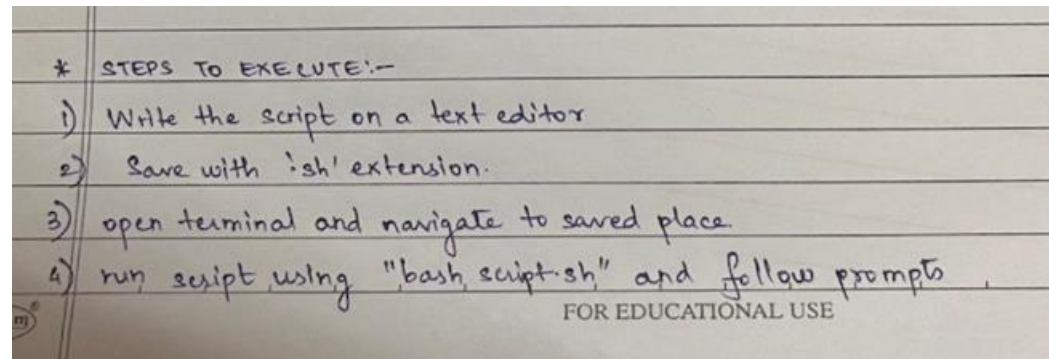 * STEPS TO EXECUTE:-
1) Write the script on a text editor
2) Save with '.sh' extension.
3) open terminal and navigate to saved place.
4) run script using "bash script.sh" and follow prompts
FOR EDUCATIONAL USE